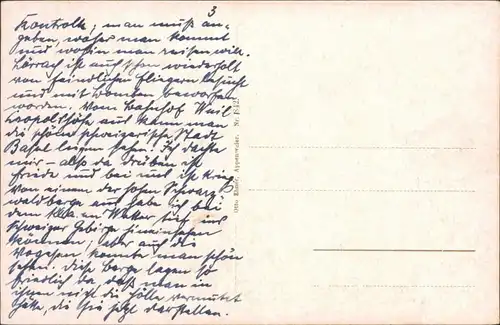 3
Kontrolle; man muß an-
geben, woher man kommt
und wohin man reisen will.
Lörrach ist auch schon wiederholt
von feindlichen Fliegern besucht
und mit Bomben beworfen
worden. Vom Bahnhof Weil
Leopoldshöhe aus kann man
die schöne schweizerische Stadt
Basel liegen sehen. Ich dachte
mir – also da drüben ist
Friede und bei uns ist Krieg.
Von einem der hohen Schwarz-
waldberge aus habe ich bei
dem klaren Wetter tief ins
Schweizer Gebirge hineinsehen
können; aber auch die
Vogesen konnte man schön
sehen. Diese Berge lagen so
friedlich da, daß man in
ihnen nicht die Hölle vermutet
hätte, die sie jetzt darstellen.
Otto Appenweier. Nr.